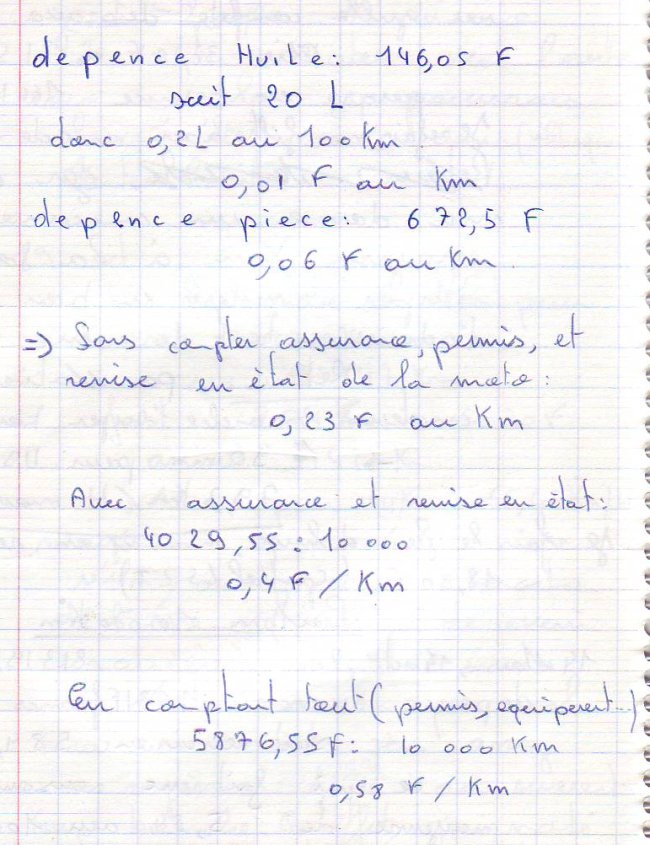 depence Huile: 146,05 F
soit 20 L
donc 0,2L au 100 Km
0,01 F au Km
depence piece: 672,5 F
0,06 F au Km
=> Sans compter assurance, permis, et
remise en état de la moto:
0,23 F au Km
Avec assurance et remise en état:
4029,55 : 10 000
0,4 F / Km
En comptant tout (permis, equipement...)
5876,55 F : 10 000 Km
0,58 F / Km